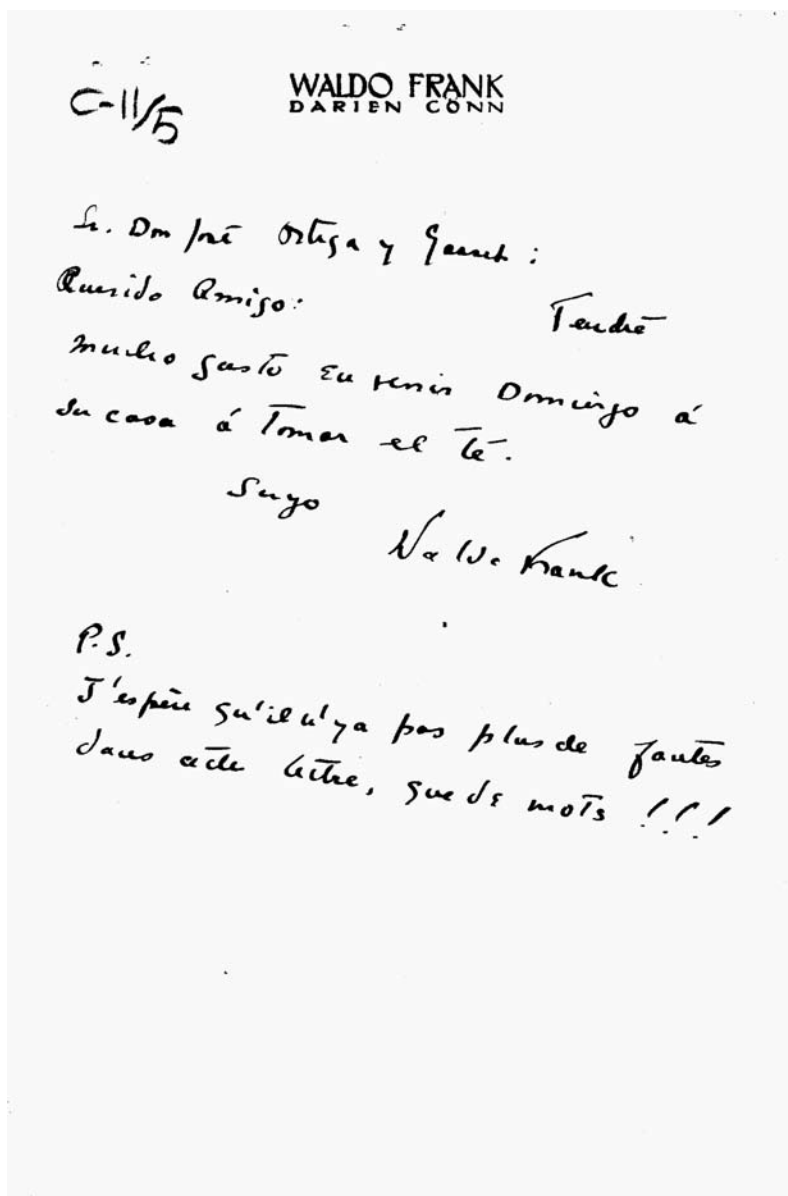 C-11/5
WALDO FRANK
DARIEN CONN
Sr. Don José Ortega y Gasset :
Querido Amigo:
Tendré
mucho gusto en venir Domingo á
su casa á Tomar el té.
Suyo
Waldo Frank
P.S.
J'espère qu'il n'y a pas plus de fautes
dans cette lettre, que de mots !!!